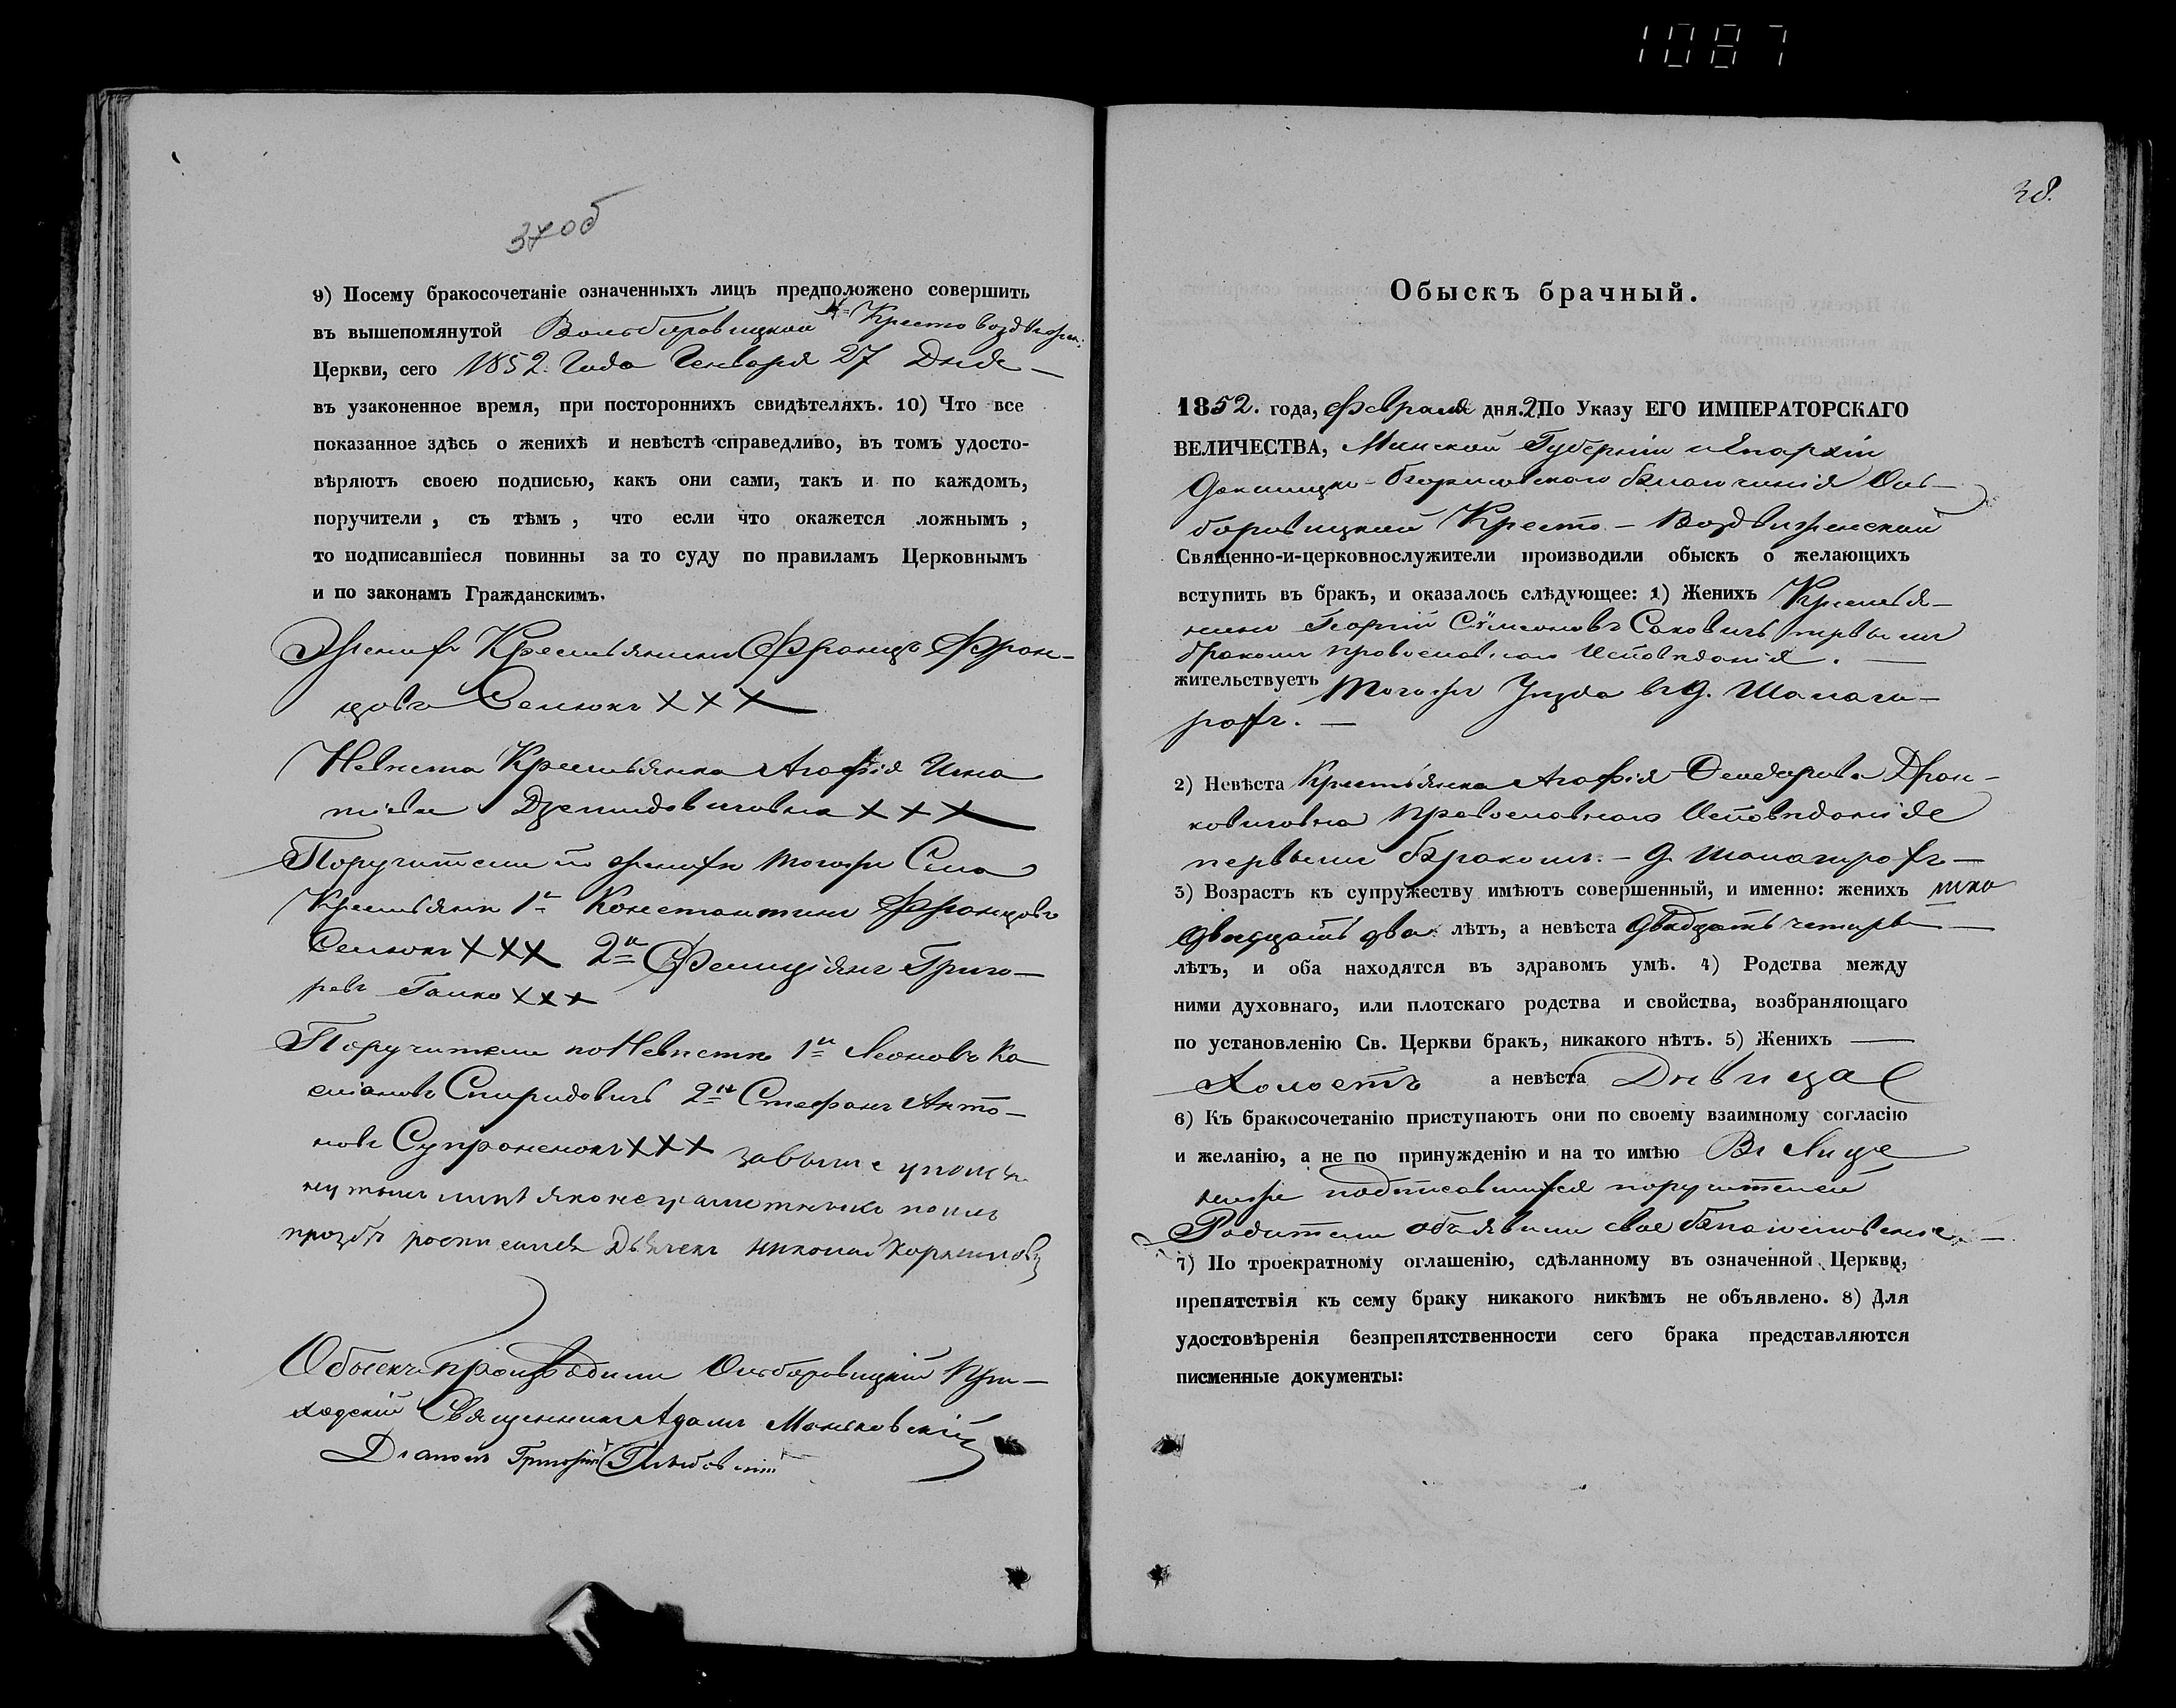 1087
37об
9) Посему бракосочетаніе означенныхъ лицъ предположено совершить
въ вышепомянутой Кресто воздвижен:
Церкви, сего 1852. Года Генваря 27 Дня —
въ узаконенное время, при постороннихъ свидѣтеляхъ. 10) Что все
показанное здѣсь о женихѣ и невѣстѣ справедливо, въ томъ удосто-
вѣряютъ своею подписью, какъ они сами, такъ и по каждомъ,
поручители, съ тѣмъ, что если что окажется ложнымъ,
то подписавшіеся повинны за то суду по правиламъ Церковнымъ
и по законамъ Гражданскимъ.
Женихъ Крестьянинъ Францъ Фран-
цовъ Семюкъ ХХХ
Невѣста Крестьянка Агафія Игна
тіева Дземидовичовна ХХХ
Поручители по женихѣ тогожъ Села
Крестьяне 1й Константинъ Францовъ
Семюкъ ХХХ 2й Фелиціянъ Григо-
ревъ Галко ХХХ
Поручители по Невѣстѣ 1й Леонъ Ка
сіановъ Спиридовичъ 2й Стефанъ Анто-
новъ Супроненокъ ХХХ за выше упомя
нутыхъ лицъ яко неграмотныхъ по ихъ
прозбѣ росписался Дьячекъ Николай
Обыскъ производили Ольборовицкій При-
ходскій Священникъ Адамъ Маньковскій
Дьяконъ Григорій
38.
Обыскъ брачный.
1852. года, Февраля дня. 2. По Указу ЕГО ИМПЕРАТОРСКАГО
ВЕЛИЧЕСТВА, Минской Губерніи и Епархіи
Докшицко-Борисовскаго благочинія Оль-
боровицкой Кресто-Воздвиженской
Священно-и-церковнослужители производили обыскъ о желающихъ
вступить въ бракъ, и оказалось слѣдующее: 1) Женихъ Крестья-
нинъ Георгій Сѵмеоновъ Саковичъ первымъ
бракомъ православнаго Исповѣданія. —
жительствуетъ Тогожъ Уѣзда въ д. Шалаги-
рахъ. —
2) Невѣста Крестьянка Агафія Феодорова Дран-
ковичовна православнаго Исповѣданія
первымъ бракомъ. — д. Шалагирахъ —
3) Возрастъ къ супружеству имѣютъ совершенный, и именно: женихъ
Двадцать два лѣтъ, а невѣста Двадцать четыре —
лѣтъ, и оба находятся въ здравомъ умѣ. 4) Родства между
ними духовнаго, или плотскаго родства и свойства, возбраняющаго
по установленію Св. Церкви бракъ, никакого нѣтъ. 5) Женихъ —
Холостъ а невѣста Дѣвица
6) Къ бракосочетанію приступаютъ они по своему взаимному согласію
и желанію, а не по принужденію и на то имѣю Въ Лице
ниже подписавшихся поручителей
Родители объявили свое благословеніе. —
7) По троекратному оглашенію, сдѣланному въ означенной Церкви,
препятствія къ сему браку никакого никѣмъ не объявлено. 8) Для
удостовѣренія безпрепятственности сего брака представляются
писменные документы: